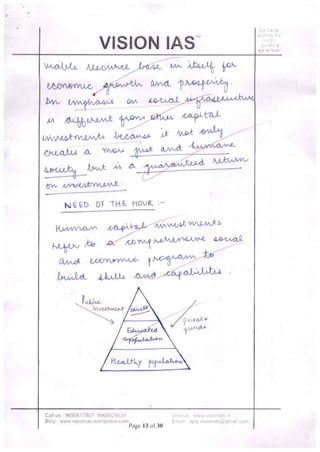 VISION IAS™
viable resource base in itself for
economic growth and prosperity.
An emphasis on social infrastructure
is different from other capital
investments because it not only
creates a more just and humane
society but is a guaranteed return
on investment.
NEED OF THE HOUR :-
Human capital investments
refer to a comprehensive social
and economic program to
build skills and capabilities.
Public
Investment
Skilled
Private
funds
Educated
population
Healthy population
Call us : 9650617807 9968029039
Visit us : www.visionias.in
Blog : www.visionias.wordpress.com
Page 13 of 30